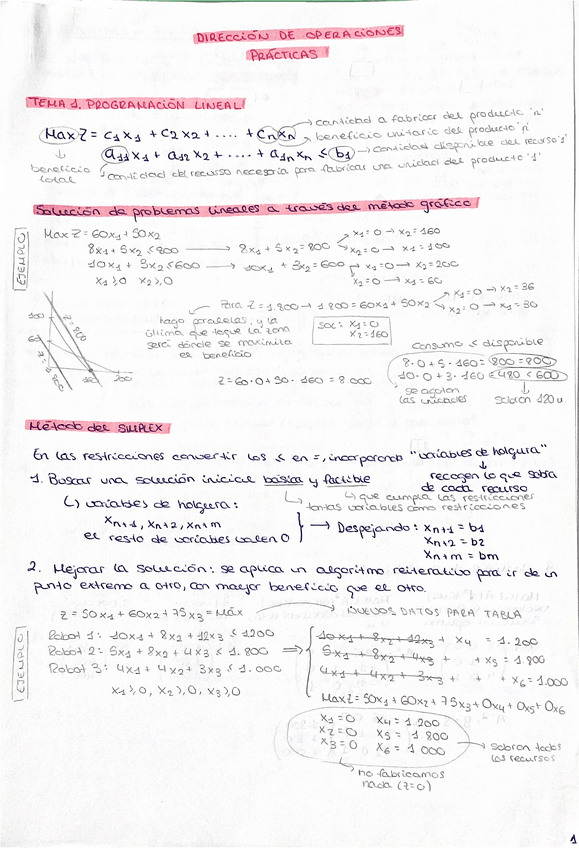 DIRECCIÓN DE OPERACIONES
PRÁCTICAS
TEMA 1. PROGRAMACIÓN LINEAL
cantidad a fabricar del producto 'n'
Max Z = c1x1 + c2x2 + .... + cnxn → beneficio unitario del producto 'n'
a11x1 + a12x2 + .... + a1nxn ≤ b1 → cantidad disponible del recurso '1'
beneficio total
cantidad del recurso necesaria para fabricar una unidad del producto '1'
Solución de problemas lineales a través del método gráfico
EJEMPLO
Max Z = 60x1 + 50x2
8x1 + 5x2 ≤ 800 → 8x1 + 5x2 = 800
x1=0 → x2=160
x2=0 → x1=100
10x1 + 3x2 ≤ 600 → 10x1 + 3x2 = 600
x1=0 → x2=200
x2=0 → x1=60
x1 ≥ 0 x2 ≥ 0
Para Z = 1.800 → 1.800 = 60x1 + 50x2
x1=0 → x2=36
x2=0 → x1=30
hago paralelas, y la
última que toque la zona
será dónde se maximiza
el beneficio
SOL: x1=0
x2=160
Z = 60·0 + 50·160 = 8.000
Consumo ≤ disponible
8·0 + 5·160 = 800 = 800
10·0 + 3·160 = 480 < 600
se agotan
las unidades
Sobran 120 u.
100
60
160
200
Método del SIMPLEX
En las restricciones convertir los ≤ en =, incorporando "variables de holgura"
recogen lo que sobra
de cada recurso
1. Buscar una solución inicial básica y factible
que cumpla las restricciones
tantas variables como restricciones
variables de holgura:
xn+1, xn+2, xn+m
el resto de variables valen 0
→ Despejando: xn+1 = b1
xn+2 = b2
xn+m = bm
2. Mejorar la solución: se aplica un algoritmo reiterativo para ir de un
punto extremo a otro, con mayor beneficio que el otro.
EJEMPLO
Z = 50x1 + 60x2 + 75x3 = Máx
NUEVOS DATOS PARA TABLA
Robot 1: 10x1 + 8x2 + 12x3 ≤ 1200
Robot 2: 5x1 + 8x2 + 4x3 ≤ 1.800
Robot 3: 4x1 + 4x2 + 3x3 ≤ 1.000
x1 ≥ 0, x2 ≥ 0, x3 ≥ 0
10x1 + 8x2 + 12x3 + x4 = 1.200
5x1 + 8x2 + 4x3 + x5 = 1.800
4x1 + 4x2 + 3x3 + x6 = 1.000
Max Z = 50x1 + 60x2 + 75x3 + 0x4 + 0x5 + 0x6
x1=0 x4 = 1.200
x2=0 x5 = 1.800
x3=0 x6 = 1 000
Sobran todos
los recursos
no fabricamos
nada (Z=0)
1